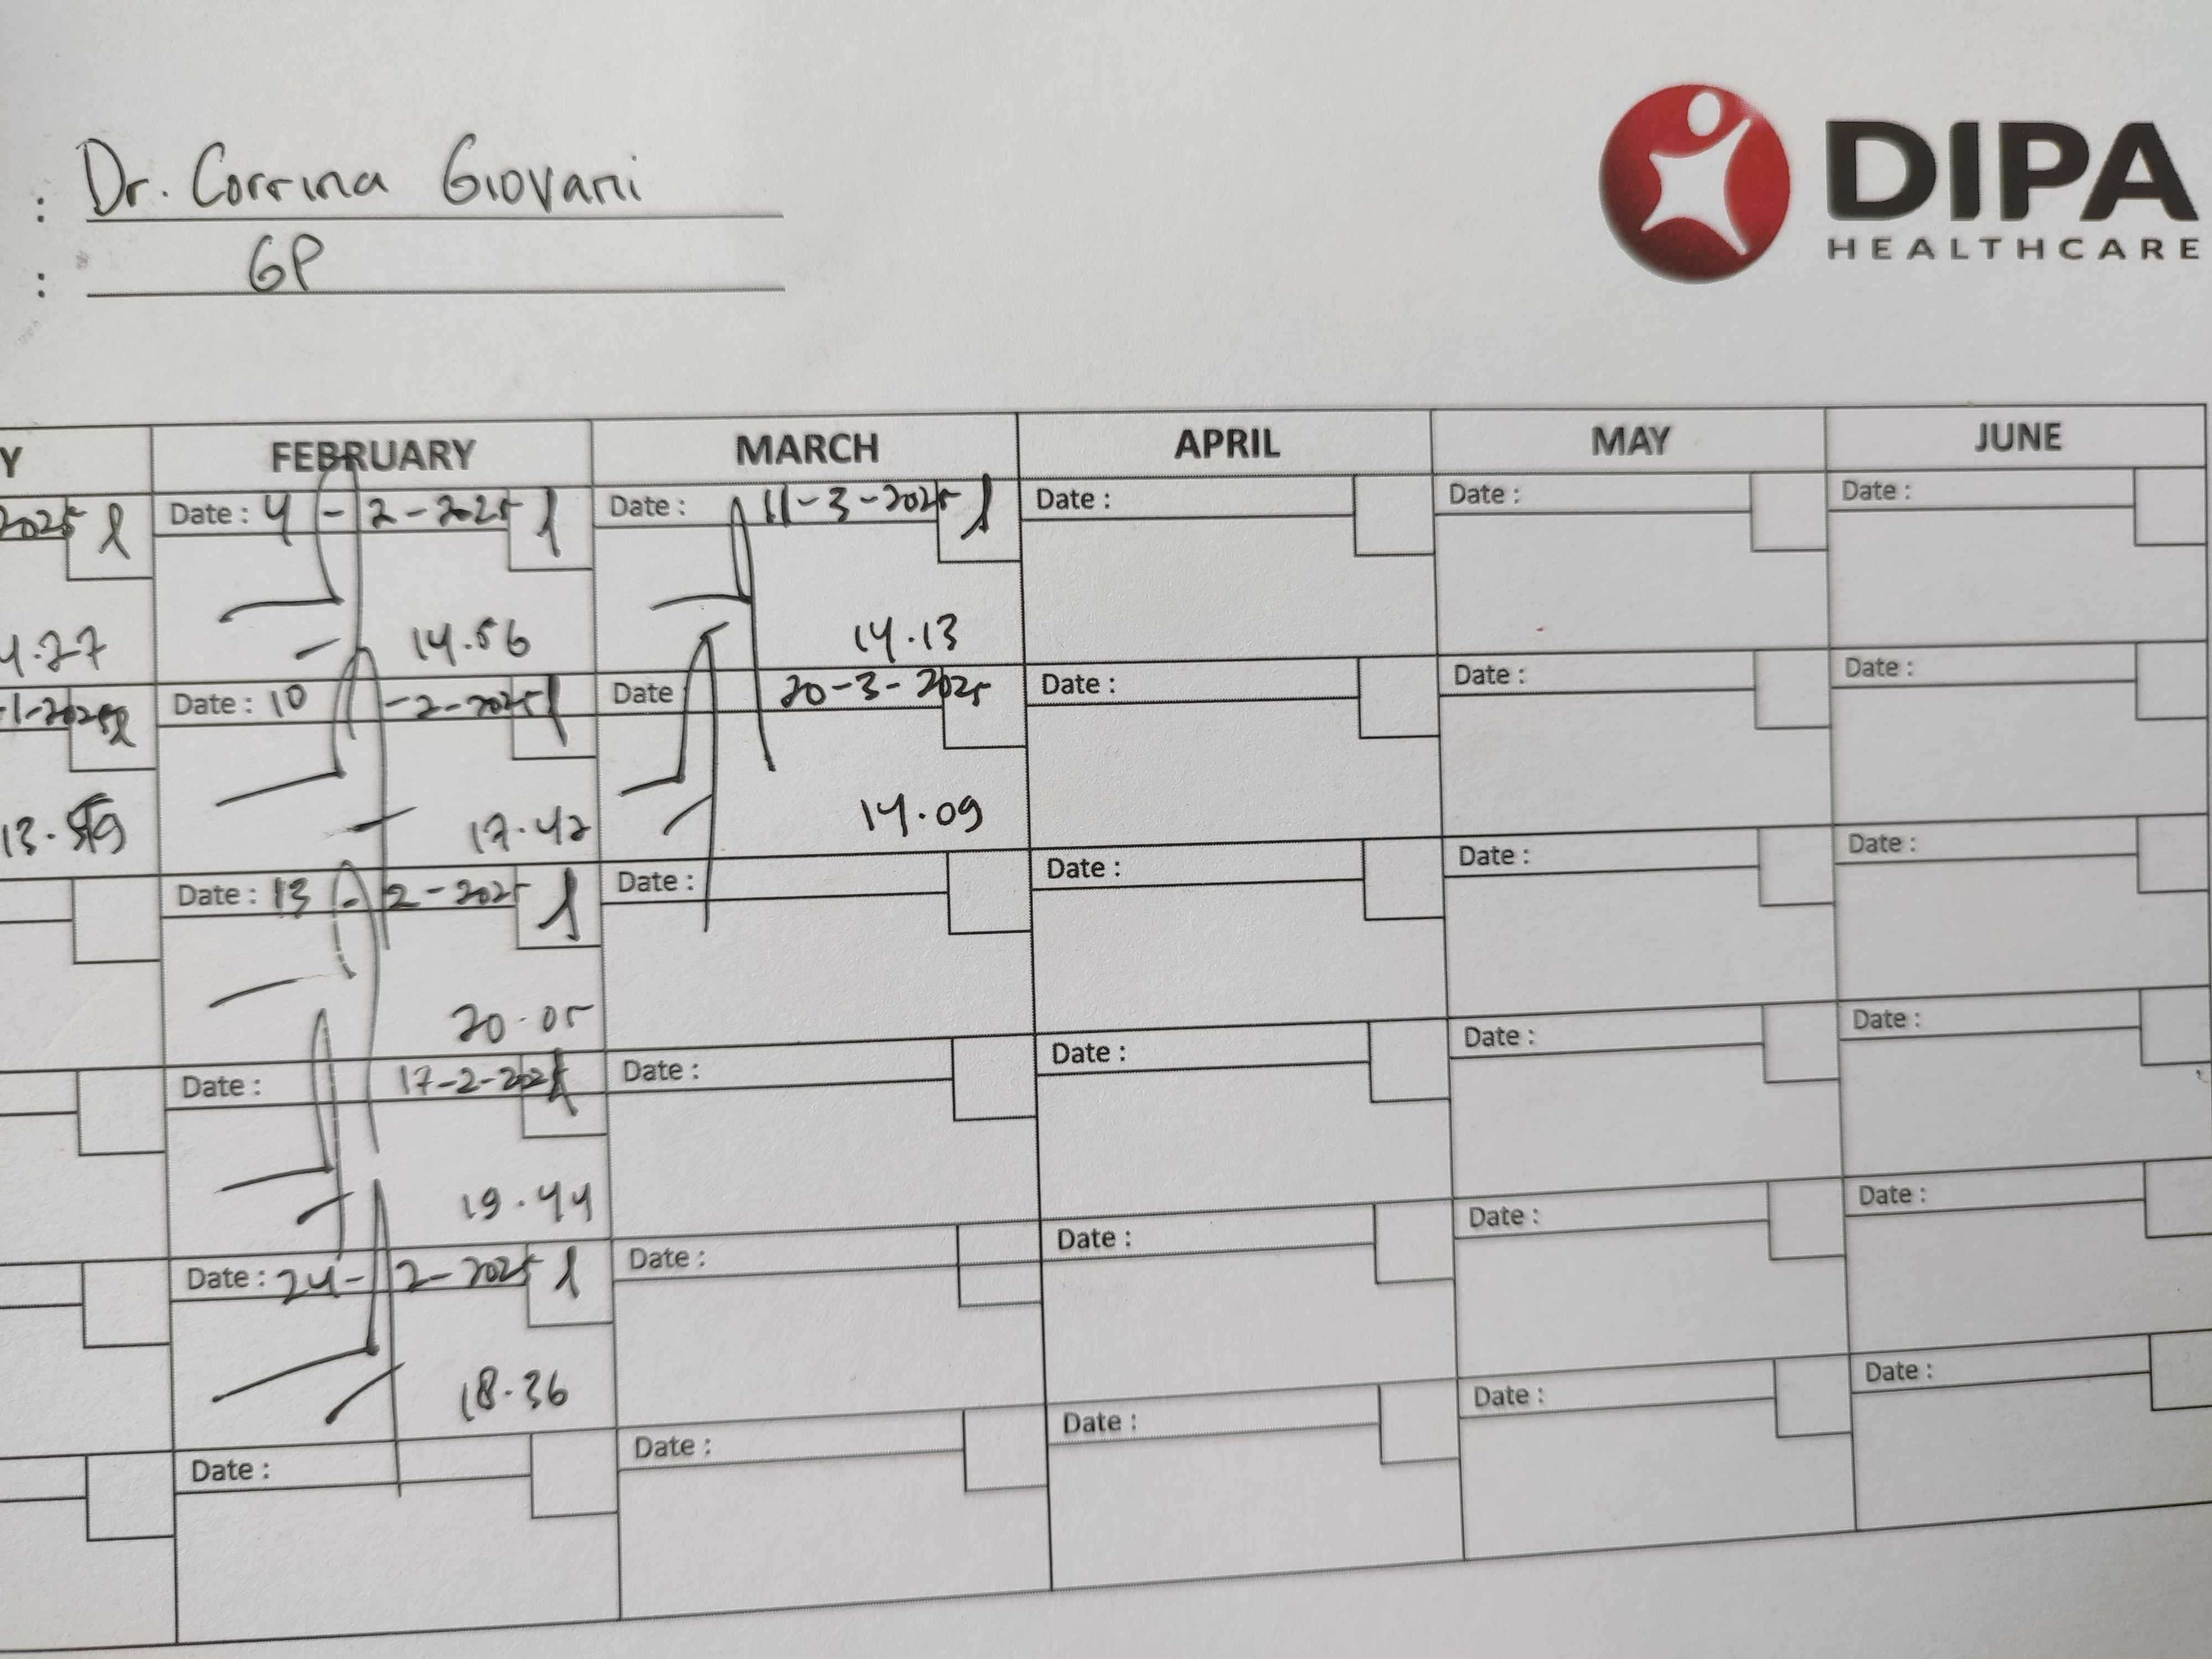 : Dr. Corrina Giovani
: GP
DIPA
HEALTHCARE
Y FEBRUARY MARCH APRIL MAY JUNE
2025 Date : 4 - 2 - 2025 Date : 11-3-2025 Date : Date : Date :
4.27 14.56 14.13
-1-2025 Date : 10 -2-2025 Date 20-3-2025 Date : Date : Date :
13.59 17.42 14.09
Date : 13 - 2-2025 Date : Date : Date : Date :
20.05
Date : 17-2-2025 Date : Date : Date : Date :
19.44
Date : 24- 2-2025 Date : Date : Date : Date :
18.36
Date : Date : Date : Date : Date :